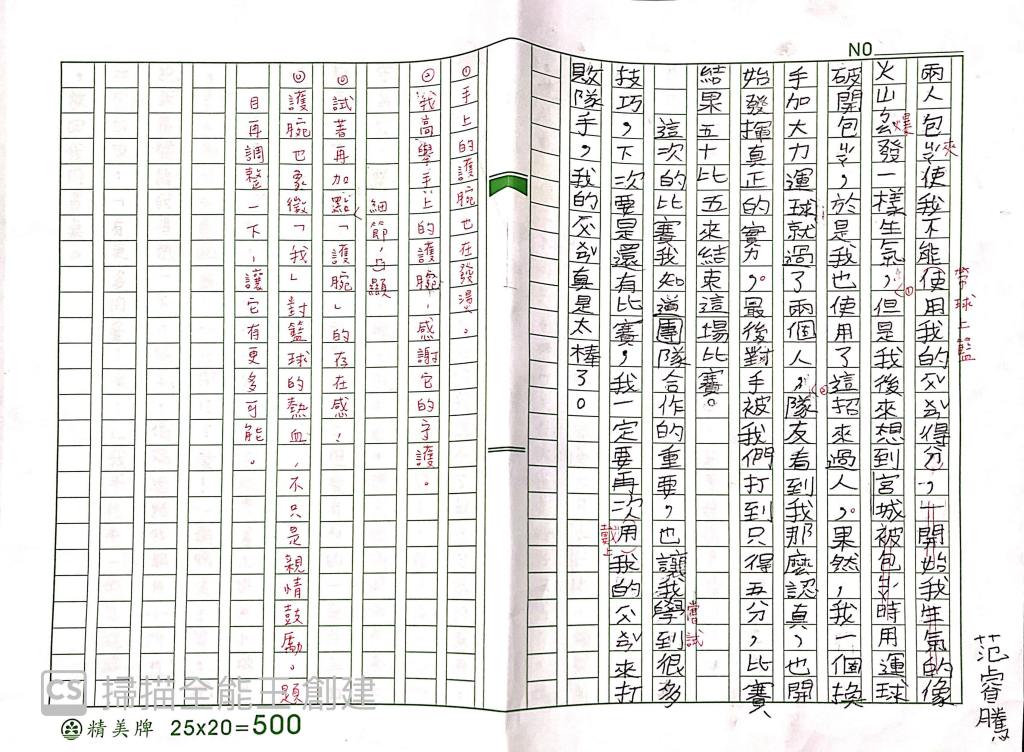 NO
兩人包ㄐㄧㄚ使我不能使用我的ㄍㄨㄥㄐㄧ得分,一開始我生氣的像
來
帶球上籃
火山ㄅㄠ發一樣生氣,但是我後來想到宮城被包ㄐㄧㄚ時用運球
爆
①
破開包ㄐㄧㄚ,於是我也使用了這招來過人。果然,我一個換
手加大力運球就過了兩個人,隊友看到我那麼認真,也開
②
始發揮真正的實力。最後對手被我們打到只得五分,比賽
結果五十比五來結束這場比賽。
這次的比賽我知道團隊合作的重要,也讓我學到很多
嘗試
技巧,下次要是還有比賽,我一定要再次用我的ㄍㄨㄥㄐㄧ來打
戴上
敗隊手,我的ㄍㄨㄥㄐㄧ真是太棒了。
范睿騰
①手上的護腕也在發燙。
②我高舉手上的護腕,感謝它的守護。
細節,凸顯
◎試著再加點「護腕」的存在感!
◎護腕也象徵「我」對籃球的熱血,不只是親情鼓勵。題
目再調整一下,讓它有更多可能。
CS 掃描全能王 創建
精美牌 25x20=500